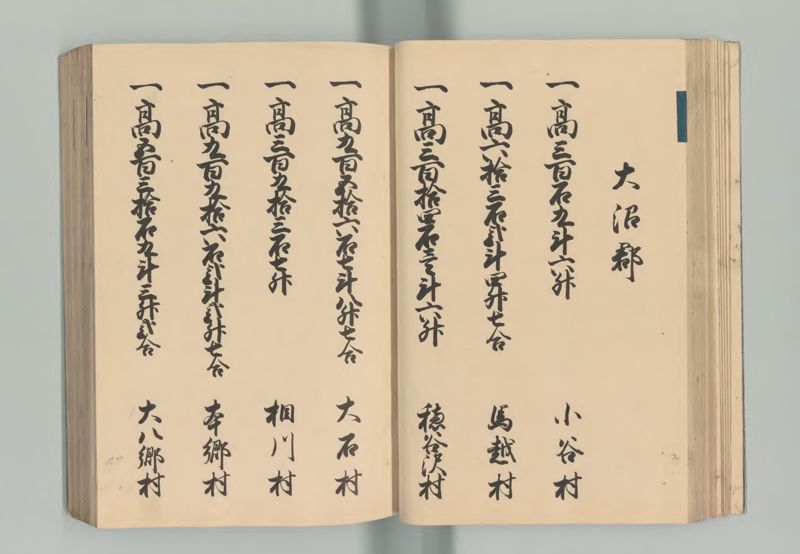 大沼郡
一高三百石九斗六升 小谷村
一高六拾三石弐斗四升七合 馬越村
一高三百拾四石三斗六升 穂谷沢村
一高九百五拾六石七斗八升七合 大石村
一高三百九拾三石七升 相川村
一高九百九拾六石弐斗弐升七合 本郷村
一高五百三拾石九斗三升弐合 大八郷村